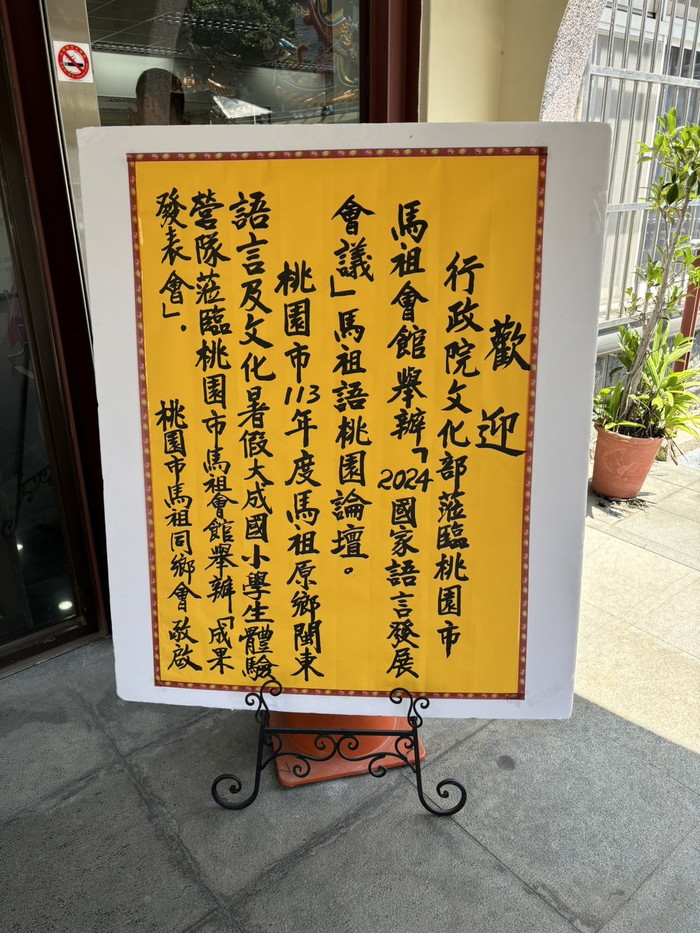 歡迎
行政院文化部蒞臨桃園市
馬祖會館舉辦「2024國家語言發展
會議」馬祖語桃園論壇。
桃園市113年度馬祖原鄉閩東
語言及文化暑假大成國小學生體驗
營隊蒞臨桃園市馬祖會館舉辦「成果
發表會」.
桃園市馬祖同鄉會敬啟